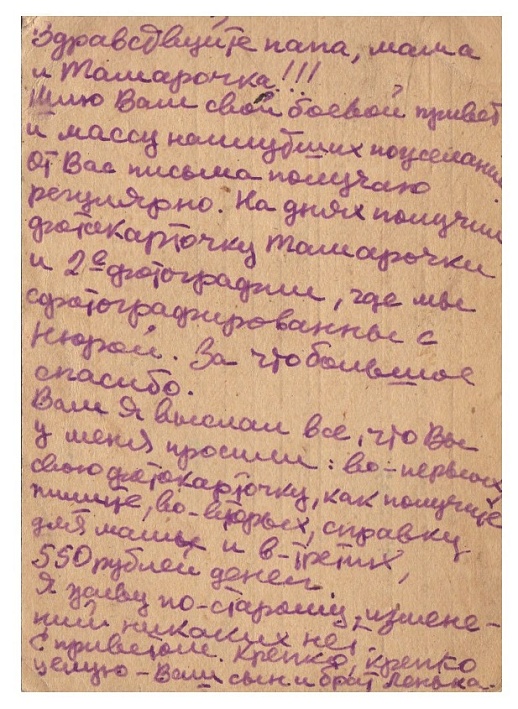 Здравствуйте папа, мама
и Тамарочка!!!
Шлю Вам свой боевой привет
и массу наилучших пожеланий
От Вас письма получаю
регулярно. На днях получил
фотокарточку Тамарочки
и 2е фотографии, где мы
сфотографированные с
Нюрой. За что большое
спасибо.
Вам я выслал все, что Вы
у меня просили: во-первых
свою фотокарточку, как получите
пишите, во-вторых, справку
для мамы и в-третих,
550 рублей денег
Я живу по-старому, измене-
ний никаких нет.
С приветом. Крепко, крепко
целую - Ваш сын и брат Ленька.